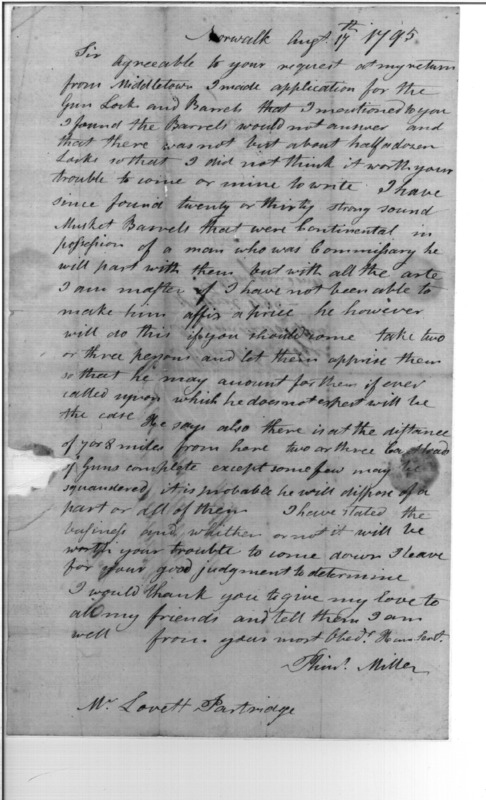 Norwalk Augt. 17th 1795
Sir Agreeable to your request at my return
from Middletown I made application for the
Gun Lock and Barrels that I mentioned to you
I found the Barrels would not answer and
that there was not but about half a dozen
Locks so that I did not think it worth your
trouble to come or mine to write I have
since found twenty or thirty strong sound
Musket Barrels that were Continental in
possession of a man who was Commissary he
will part with them but with all the arte
I am master of I have not been able to
make him affix a price he however
will do this if you should come take two
or three persons and let them apprise them
so that he may amount for them if ever
called upon which he does not expect will be
the case He says also there is at the distance
of 7 or 8 miles from here two or three
of Guns complete except some few may be
squandered it is probable he will dispose of a
part or all of them I have stated the
business and whether or not it will be
worth your trouble to come down I leave
for your good judgment to determine
I would thank you to give my love to
all my friends and tell them I am
well from your most Obedt. Hum Servt.
Miller
Mr Lovett Partridge